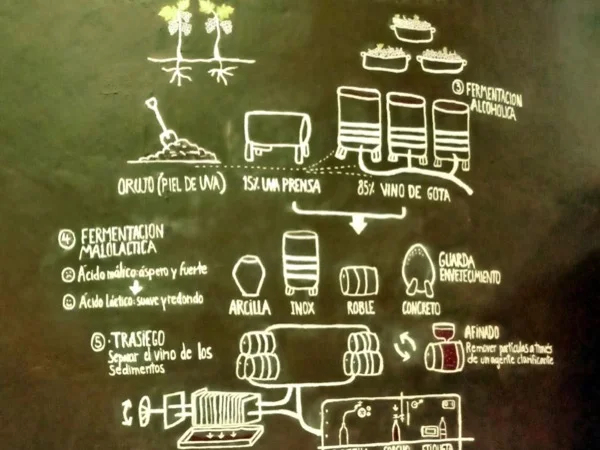 ③ FERMENTACION
ALCOHOLICA
ORUJO (PIEL DE UVA)
15% UVA PRENSA
85% VINO DE GOTA
④ FERMENTACION
MALOLACTICA
Ácido málico: áspero y fuerte
Ácido láctico: suave y redondo
ARCILLA
INOX
ROBLE
CONCRETO
GUARDA
ENVEJECIMIENTO
⑤ · TRASIEGO
Separar el vino de los
sedimentos
AFINADO
Remover partículas a través
de un agente clarificante
CORCHO
ETIQUETA